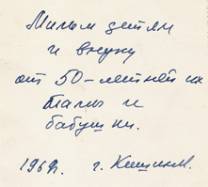 Милым детям
и внуку
от 50-летней их
мамы и
бабушки.
1969г. г. Кишинев.